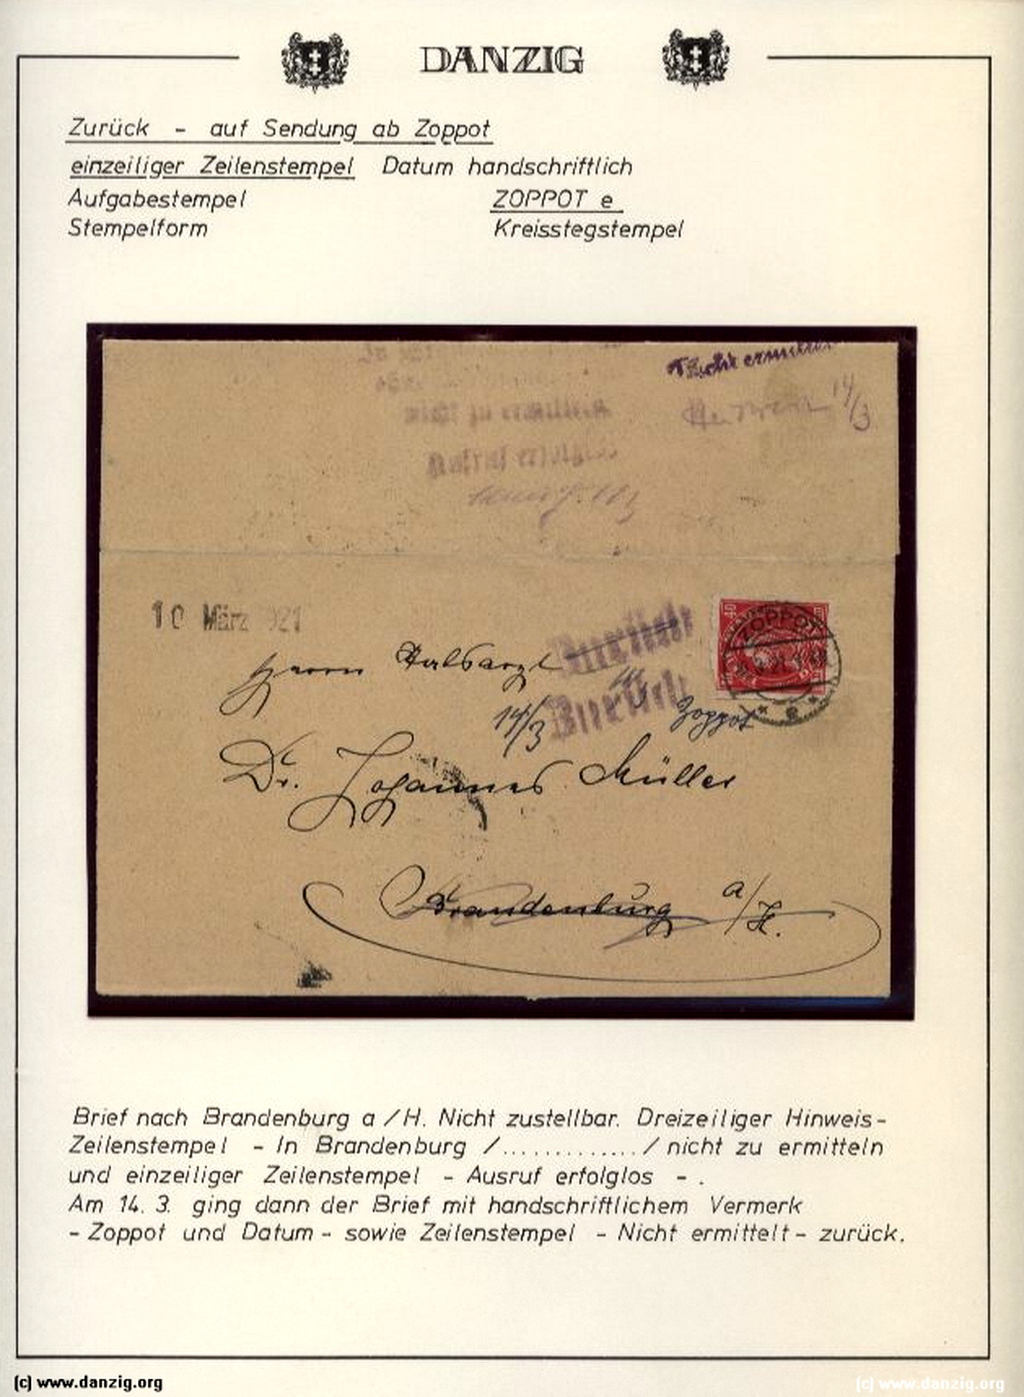 DANZIG
Zurück - auf Sendung ab Zoppot
einzeiliger Zeilenstempel Datum handschriftlich
Aufgabestempel ZOPPOT e
Stempelform Kreisstegstempel
nicht zu ermitteln
14/3
Ausruf erfolglos
10 März 921
Zurück
ZOPPOT
40
Herrn
Zurück
14/3
Zoppot
e
Dr. Johannes Müller
Brandenburg a/H.
Brief nach Brandenburg a/H. Nicht zustellbar. Dreizeiliger Hinweis-
Zeilenstempel - In Brandenburg /............./ nicht zu ermitteln
und einzeiliger Zeilenstempel - Ausruf erfolglos - .
Am 14. 3. ging dann der Brief mit handschriftlichem Vermerk
- Zoppot und Datum - sowie Zeilenstempel - Nicht ermittelt - zurück.
(c) www.danzig.org (c) www.danzig.org